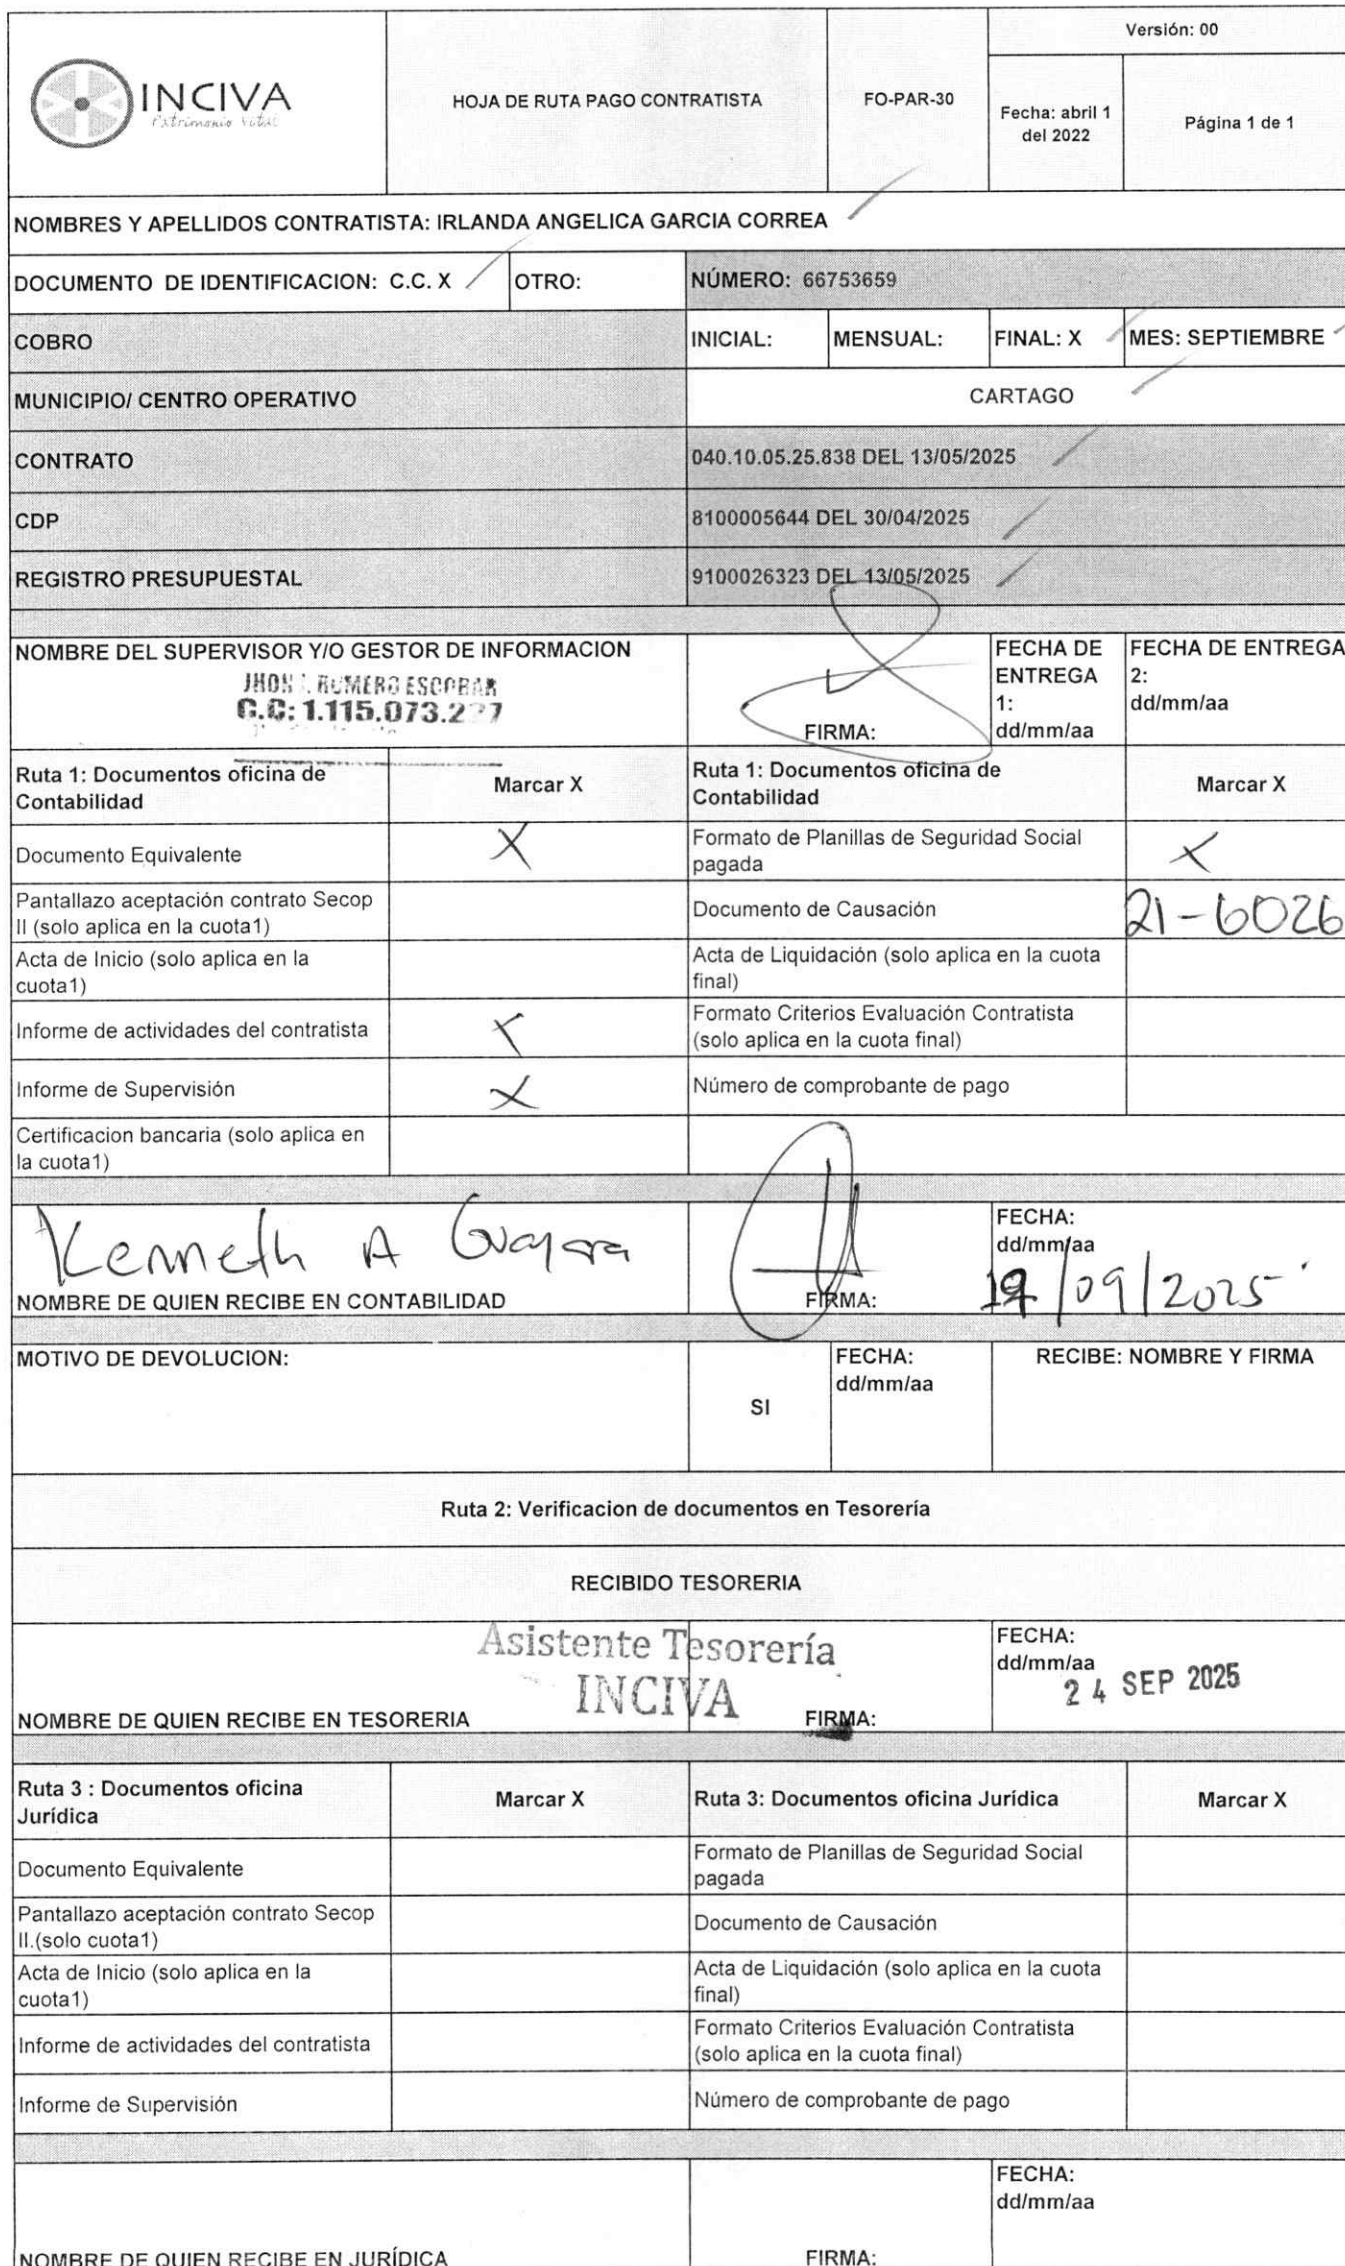 INCIVA
Patrimonio Vital
HOJA DE RUTA PAGO CONTRATISTA
FO-PAR-30
Versión: 00
Fecha: abril 1
del 2022
Página 1 de 1
NOMBRES Y APELLIDOS CONTRATISTA: IRLANDA ANGELICA GARCIA CORREA
DOCUMENTO DE IDENTIFICACION: C.C. X
OTRO:
NÚMERO: 66753659
COBRO
INICIAL:
MENSUAL:
FINAL: X
MES: SEPTIEMBRE
MUNICIPIO/ CENTRO OPERATIVO
CARTAGO
CONTRATO
040.10.05.25.838 DEL 13/05/2025
CDP
8100005644 DEL 30/04/2025
REGISTRO PRESUPUESTAL
9100026323 DEL 13/05/2025
NOMBRE DEL SUPERVISOR Y/O GESTOR DE INFORMACION
ROMERO ESCOBAR
FIRMA:
FECHA DE
ENTREGA
1:
dd/mm/aa
FECHA DE ENTREGA
2:
dd/mm/aa
Ruta 1: Documentos oficina de
Contabilidad
Marcar X
Ruta 1: Documentos oficina de
Contabilidad
Marcar X
Documento Equivalente
X
Formato de Planillas de Seguridad Social
pagada
X
Pantallazo aceptación contrato Secop
II (solo aplica en la cuota1)
Documento de Causación
21-6026
Acta de Inicio (solo aplica en la
cuota1)
Acta de Liquidación (solo aplica en la cuota
final)
Informe de actividades del contratista
X
Formato Criterios Evaluación Contratista
(solo aplica en la cuota final)
Informe de Supervisión
X
Número de comprobante de pago
Certificacion bancaria (solo aplica en
la cuota1)
Kenneth A Guayara
NOMBRE DE QUIEN RECIBE EN CONTABILIDAD
FIRMA:
FECHA:
dd/mm/aa
/09/2025
MOTIVO DE DEVOLUCION:
SI
FECHA:
dd/mm/aa
RECIBE: NOMBRE Y FIRMA
Ruta 2: Verificacion de documentos en Tesorería
RECIBIDO TESORERIA
Asistente Tesorería
INCIVA
NOMBRE DE QUIEN RECIBE EN TESORERIA
FIRMA:
FECHA:
dd/mm/aa
24 SEP 2025
Ruta 3 : Documentos oficina
Jurídica
Marcar X
Ruta 3: Documentos oficina Jurídica
Marcar X
Documento Equivalente
Formato de Planillas de Seguridad Social
pagada
Pantallazo aceptación contrato Secop
II.(solo cuota1)
Documento de Causación
Acta de Inicio (solo aplica en la
cuota1)
Acta de Liquidación (solo aplica en la cuota
final)
Informe de actividades del contratista
Formato Criterios Evaluación Contratista
(solo aplica en la cuota final)
Informe de Supervisión
Número de comprobante de pago
NOMBRE DE QUIEN RECIBE EN JURÍDICA
FIRMA:
FECHA:
dd/mm/aa